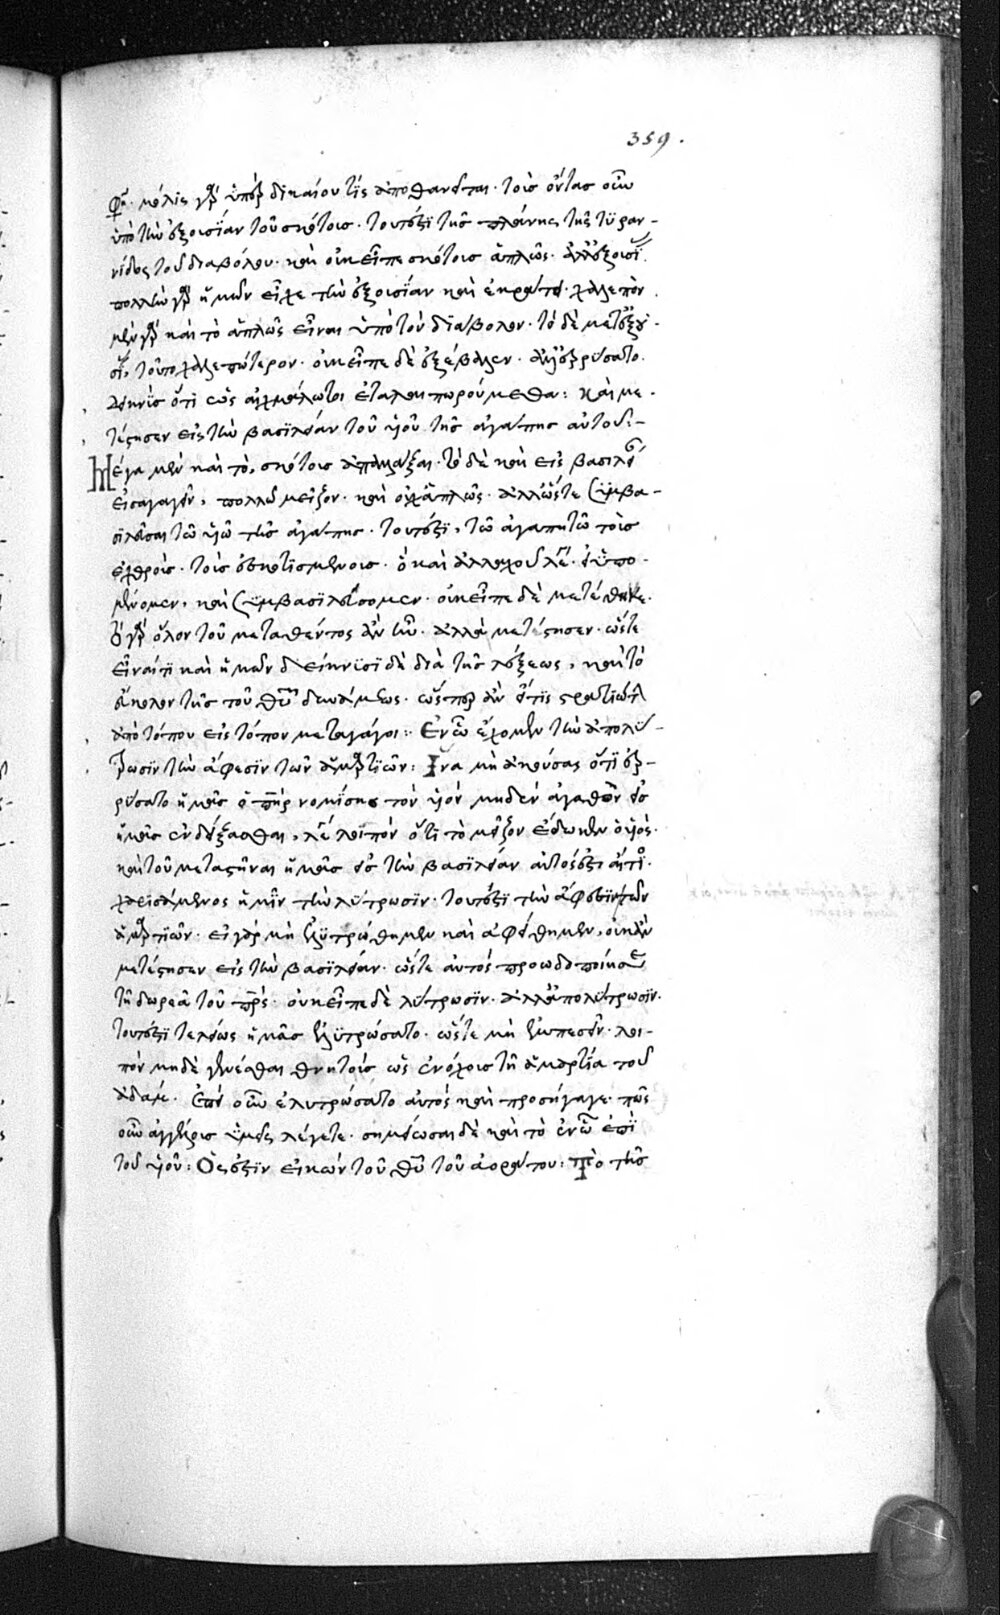 359.
φη. μόλις γὰρ ὑπὲρ δικαίου τίς ἀποθανεῖται. τοὺς ὄντας οὖν
ὑπὸ τὴν ἐξουσίαν τοῦ σκότους. τουτέστι τῆς πλάνης τῆς τυραν-
νίδος τοῦ διαβόλου. καὶ οὐκ εἶπε σκότους ἁπλῶς. ἀλλ' ἐξουσί.
πολλὴν γὰρ ἡμῶν εἶχε τὴν ἐξουσίαν καὶ ἐκράτει. χαλεπὸν
μὲν γὰρ καὶ τὸ ἁπλῶς εἶναι ὑπὸ τὸν διάβολον. τὸ δὲ μετ' ἐξου-
σί, τοῦτο χαλεπώτερον. οὐκ εἶπε δὲ ἐξέβαλεν. ἀλλ' ἐρρύσατο.
δεικνὺς ὅτι ὡς αἰχμάλωτοι ἐταλαιπωρούμεθα: Καὶ με-
τέστησεν εἰς τὴν βασιλείαν τοῦ υἱοῦ τῆς ἀγάπης αὐτοῦ:-
Μέγα μὲν καὶ τὸ, σκότους ἀπαλλάξαι. τὸ δὲ καὶ εἰς βασιλεί
εἰσαγαγεῖν, πολλῷ μεῖζον. καὶ οὐχ ἁπλῶς. ἀλλ' ὥστε συμβα-
σιλεῦσαι τῷ υἱῷ τῆς ἀγάπης. τουτέστι, τῷ ἀγαπητῷ τοὺς
ἐχθροὺς. τοὺς ἐσκοτισμένους. ὃ καὶ ἀλλαχοῦ λέ. εἰ ὑπο-
μένομεν, καὶ συμβασιλεύσομεν. οὐκ εἶπε δὲ μετέθηκε.
οὐ γὰρ ὅλον τοῦ μεταθέντος ἂν ἦν. ἀλλὰ μετέστησεν. ὥστε
εἶναί τι καὶ ἡμῶν δείκνυσι δὲ διὰ τῆς λέξεως, καὶ τὸ
εὔκολον τῆς τοῦ θυ δυνάμεως. ὥσπερ ἂν εἴ τις στρατιώτ
ἀπὸ τόπου εἰς τόπον μεταγάγοι: Ἐν ᾧ ἔχομεν τὴν ἀπολύ-
τρωσιν τὴν ἄφεσιν τῶν ἁμαρτιῶν: Ἵνα μὴ ἀκούσας ὅτι ἐρ-
ρύσατο ἡμᾶς ὁ πηρ νομίσης τὸν υἱόν μηδὲν ἀγαθὸν εἰς
ἡμᾶς ἐνδείξασθαι, λέ λοιπὸν ὅτι τὸ μεῖζον ἔδωκεν ὁ υἱός.
καὶ τοῦ μεταστῆναι ἡμᾶς εἰς τὴν βασιλείαν αὐτός ἐστι αἴτιο.
χαρισάμενος ἡμῖν τὴν λύτρωσιν. τουτέστι τὴν ἄφεσιν τῶν
ἁμαρτιῶν. εἰ γὰρ μὴ ἐλυτρώθημεν καὶ ἀφείθημεν, οὐκ ἂν
μετέστησεν εἰς τὴν βασιλείαν. ὥστε αὐτός προωδοποίησε
τῇ δωρεᾷ τοῦ πρς. οὐκ εἶπε δὲ λύτρωσιν. ἀλλ' ἀπολύτρωσιν.
τουτέστι τελείως ἡμᾶς ἐλυτρώσατο. ὥστε μὴ ἐκπεσεῖν. λοι-
πόν μηδὲ γενέσθαι θνητοὺς ὡς ἐνόχους τῇ ἁμαρτίᾳ τοῦ
ἀδάμ. Ἐπεὶ οὖν ἐλυτρώσατο αὐτός καὶ προσήγαγε. πῶς
οὖν ἀγγέλους ὑμεῖς λέγετε. σημείωσαι δὲ καὶ τὸ ἐν ᾧ ἐπὶ
τοῦ υἱοῦ: Ὅς ἐστιν εἰκὼν τοῦ θυ τοῦ ἀοράτου: Πρὸ τῆς